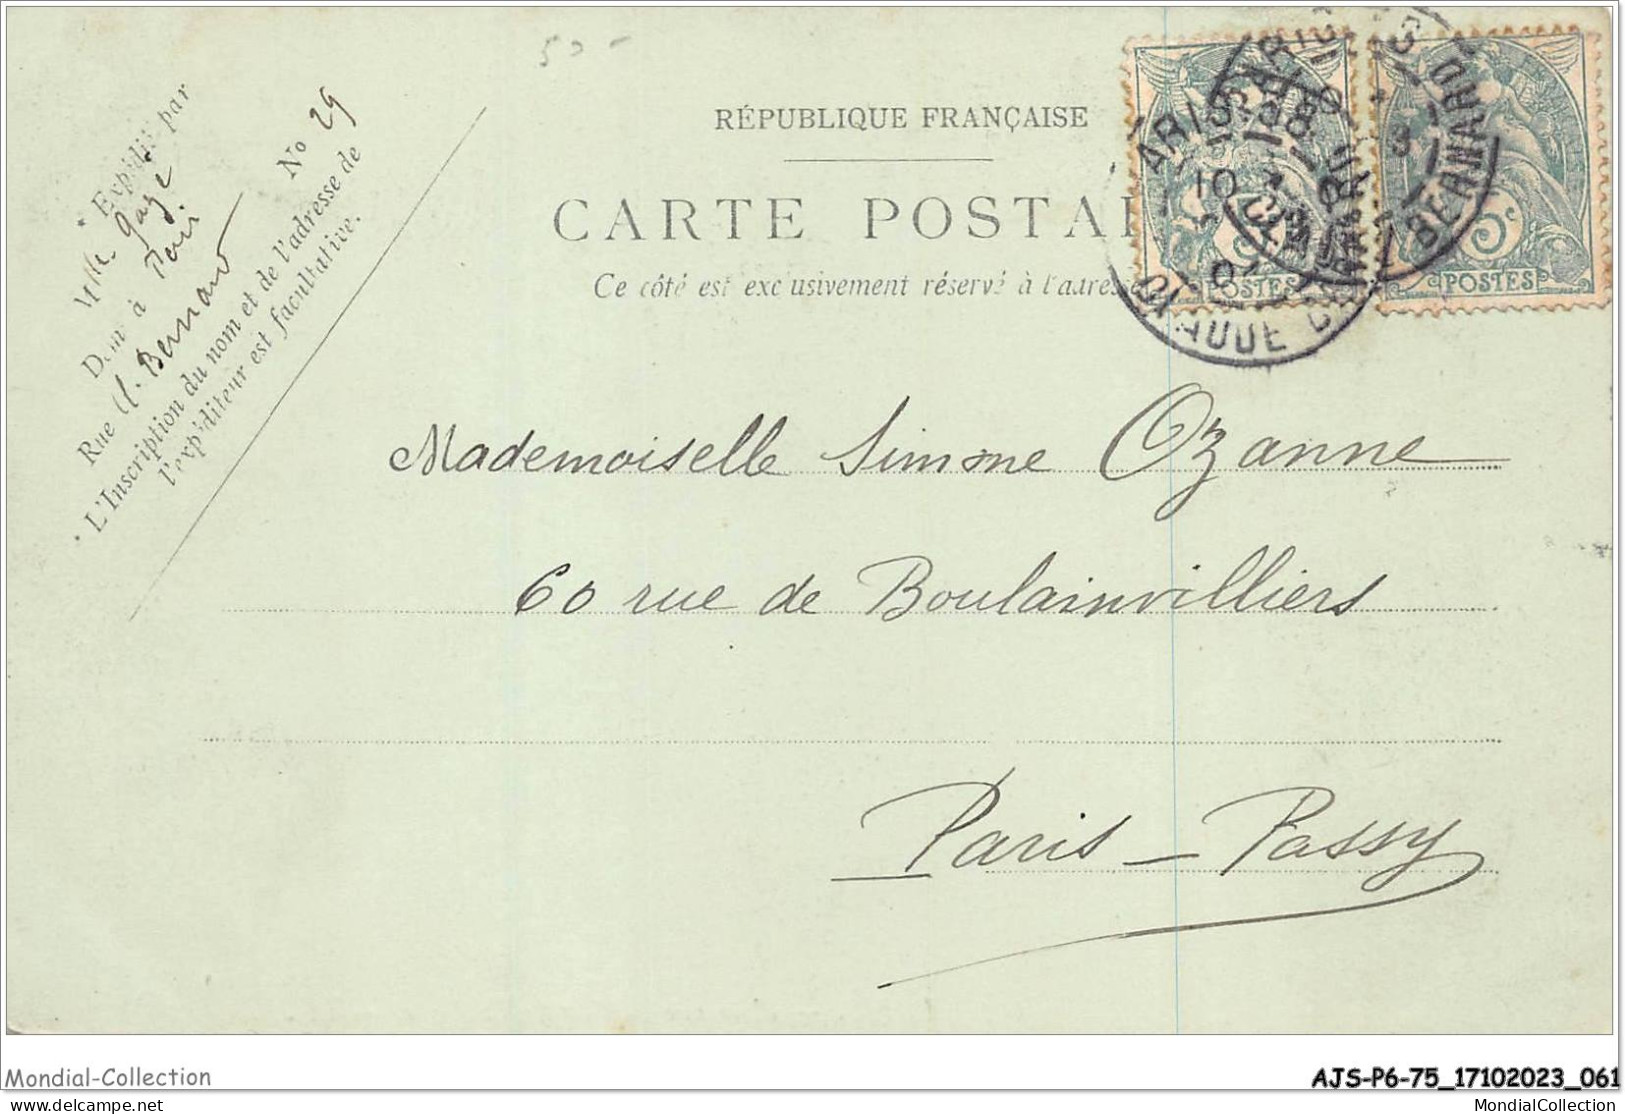 50 -
RÉPUBLIQUE FRANÇAISE
CARTE POSTAL
Ce côté est exclusivement réservé à l'adresse
Expédié par
Mlle Gaze
Dem à Paris
Rue Cl. Bernard No 29
L'Inscription du nom et de l'adresse de
l'expéditeur est facultative.
POSTES
5c
POSTES
CLAUDE BERNARD
BERNARD
Mademoiselle Simone Ozanne
60 rue de Boulainvilliers
Paris - Passy
Mondial-Collection
AJS-P6-75_17102023_061
delcampe.net
MondialCollection